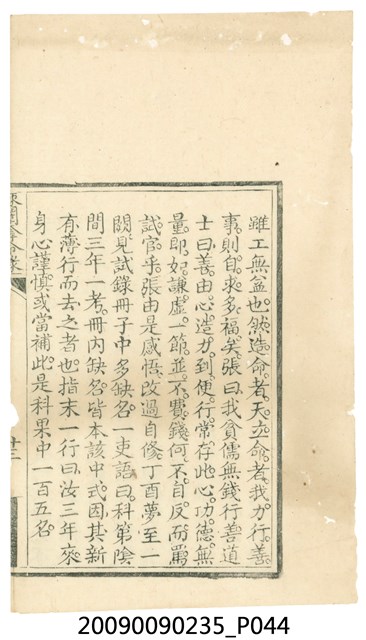 雖工無益也然造命者天立命者我力行善
事則自求多福矣張曰我貧儒無錢行善道
士曰善由心造力到便行常存此心功德無
量即如謙虛一節並不費錢何不自反而罵
試官乎張由是感悟改過自修丁酉夢至一
闕見試錄冊子中多缺名一吏語曰科第陰
間三年一考冊內缺名皆本該中式因其新
有薄行而去之者也指末一行曰汝三年來
身心謹慎或當補此是科果中一百五名
20090090235_P044